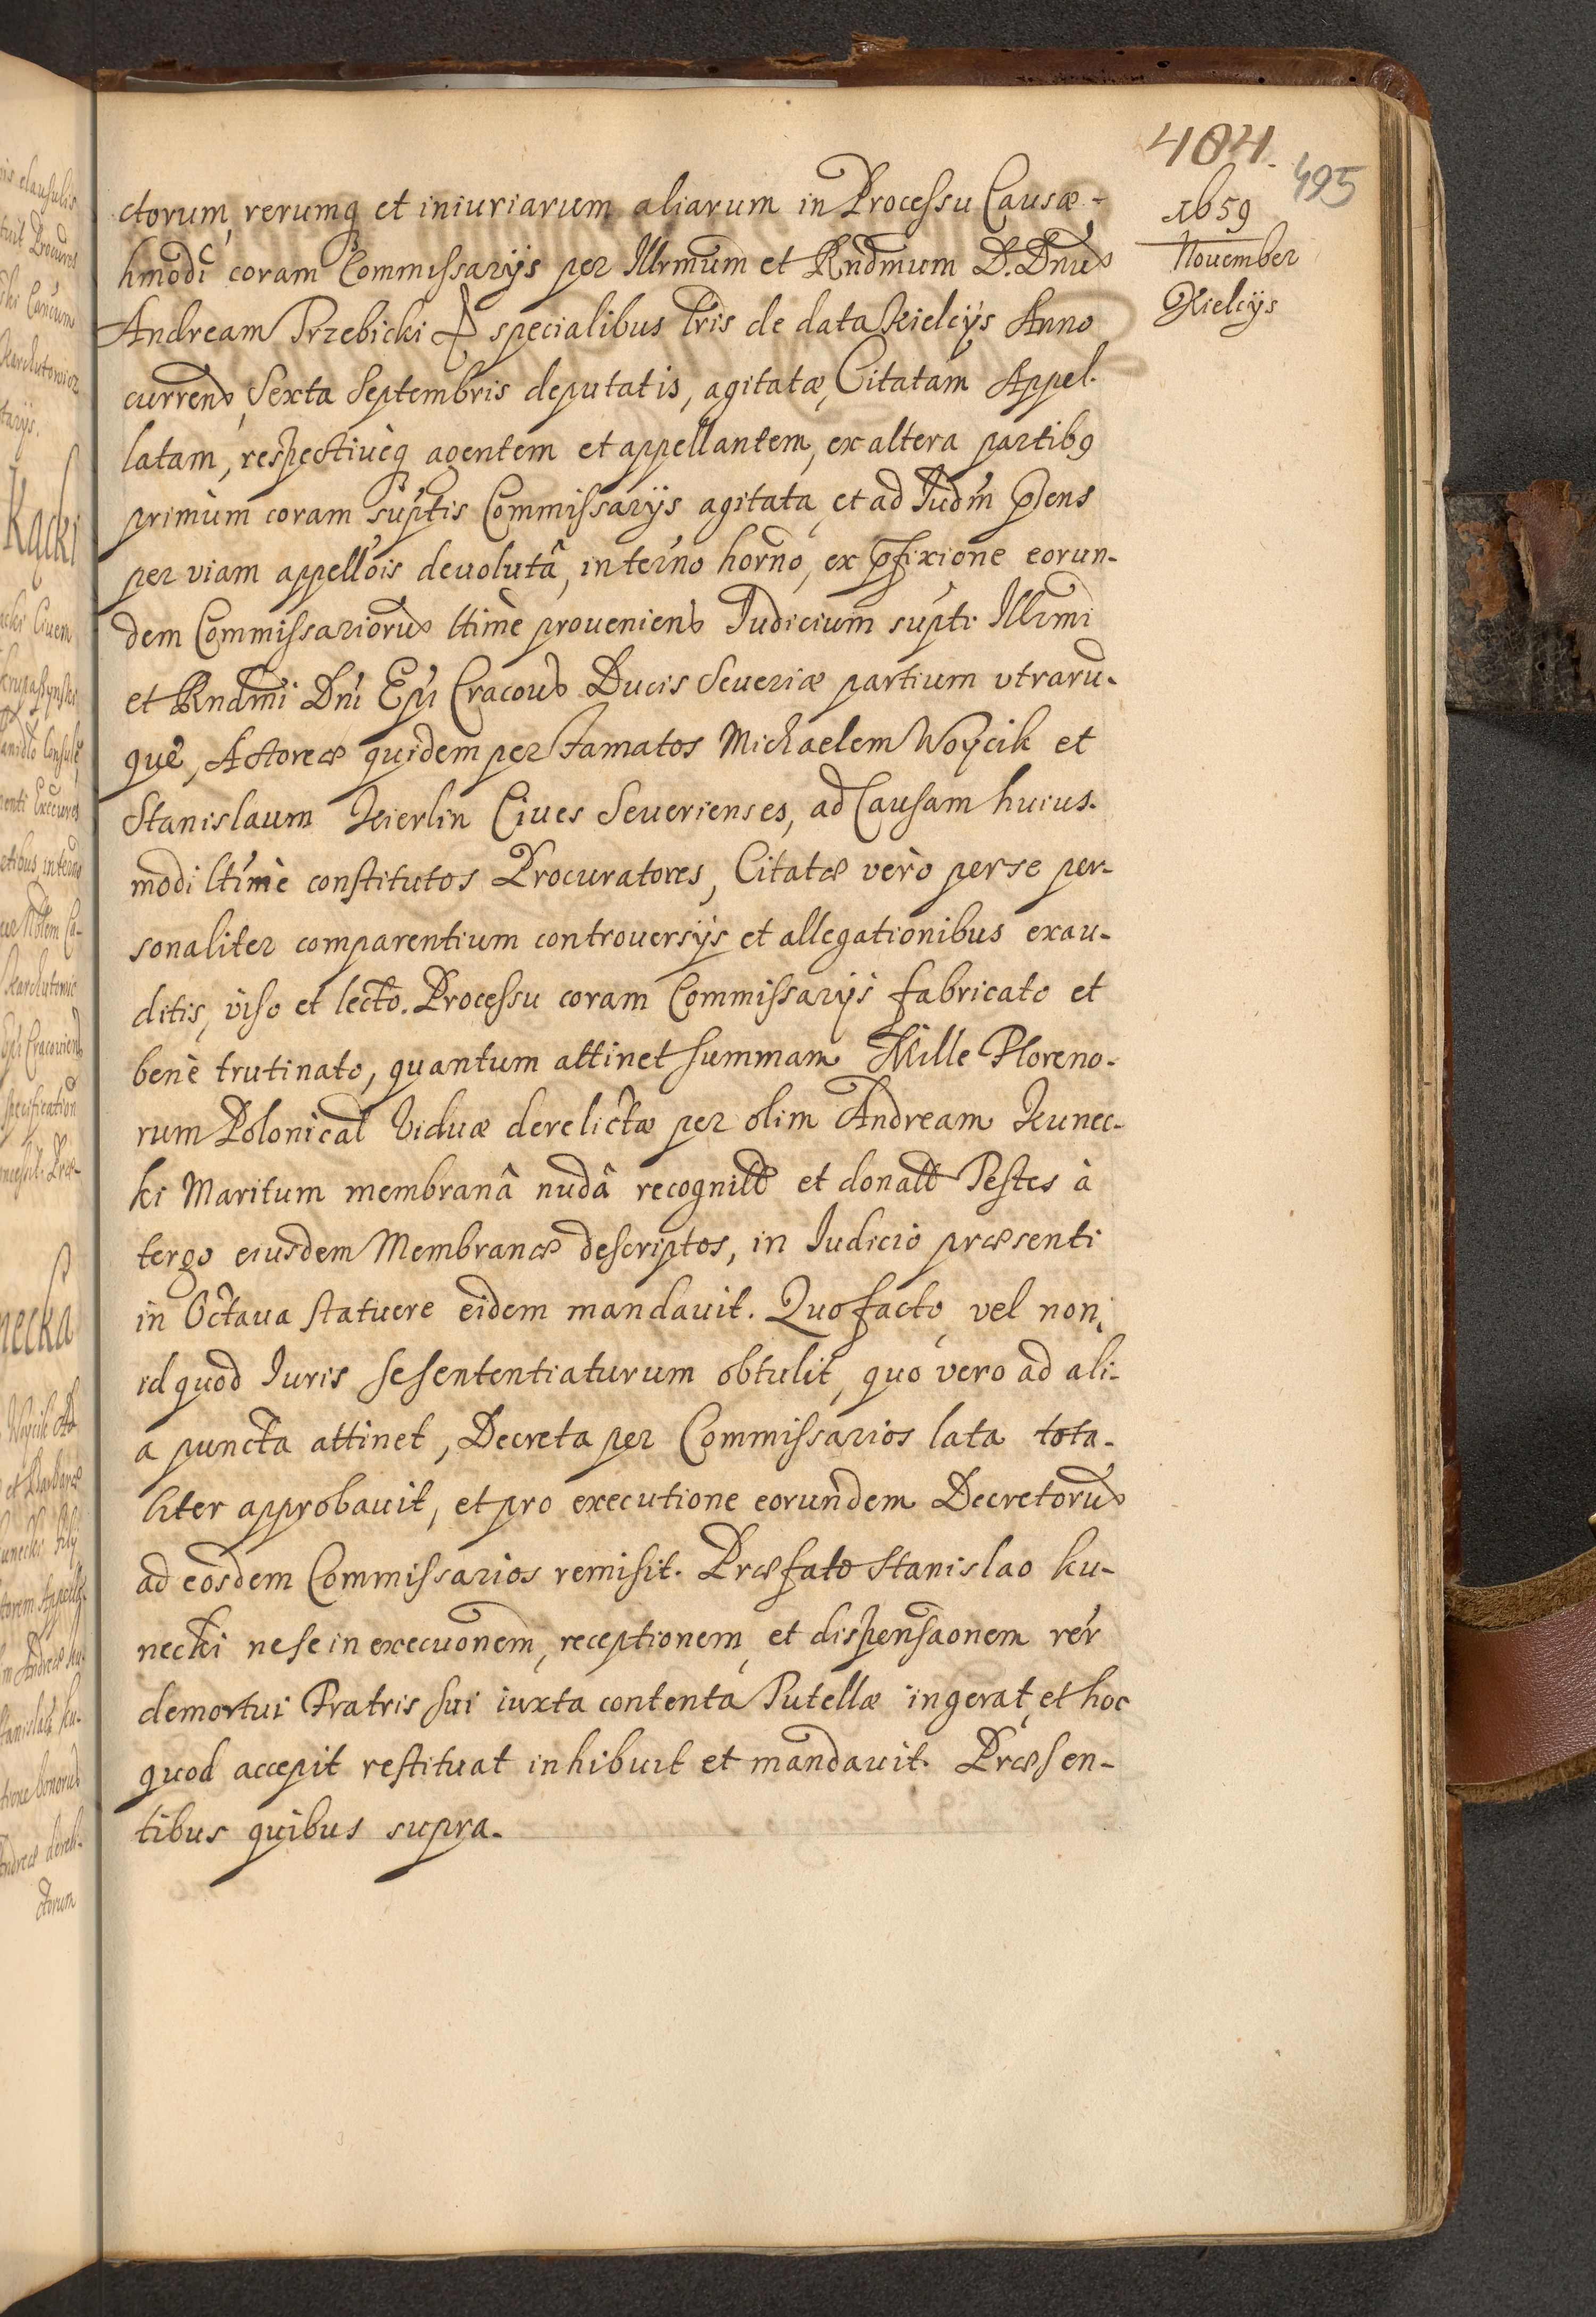 404.
495
1659
November
Kielcijs
ctorum, rerumq et iniuriarum aliarum in Processu Causæ
hmodi coram Commissarijs per Illrmum et Rndmum D. Dnu
Andream Trzebicki specialibus lris de data Kielcijs Anno
curren, Sexta Septembris deputatis, agitatæ, Citatam Appel-
latam, respectiuèq agentem et appellantem, ex altera partib9
primùm coram suptis Commissarijs agitata, et ad Iudm pñs
per viam appellois deuolutâ, in terno horno, ex pfixione eorun-
dem Commissarioru ltime proueniens Iudicium supti Illrmi
et Rndmi Dni Epi Cracou Ducis Seueriæ partium vtraru-
què, Actoreæ quidem per Famatos Michaelem Woycik et
Stanislaum Kierlin Ciues Seuerienses, ad Causam huius-
modi ltimè constitutos Procuratores, Citatæ verò per se per-
sonaliter comparentium controuersijs et allegationibus exau-
ditis, viso et lecto. Processu coram Commissarijs fabricato et
benè trutinato, quantum attinet summam Mille Floreno-
rum Polonical Viduæ derelictæ per olim Andream Kunec-
ki Maritum membranâ nudâ recognitt et donatt Testes à
tergo eiusdem Membranæ descriptos, in Iudicio præsenti
in Octaua statuere eidem mandauit. Quo facto, vel non,
id quod Iuris se sententiaturum obtulit, quo vero ad ali-
a puncta attinet, Decreta per Commissarios lata tota-
liter approbauit, et pro executione eorundem Decretoru
ad eosdem Commissarios remisit. Præfato Stanislao Ku-
necki ne se in execuonem, receptionem, et dispensaonem rer
demortui Fratris sui iuxta contenta Tutellæ ingerat, et hoc
quod accepit restituat inhibuit et mandauit. Præsen-
tibus quibus supra.